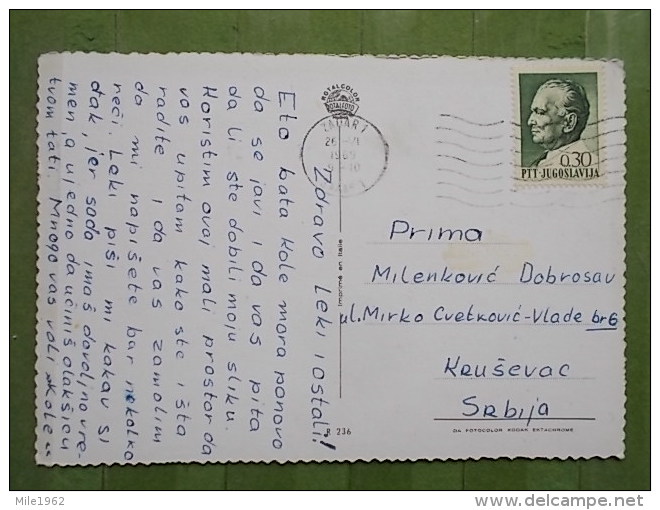 Zdravo Leki i ostali!
Eto bata Kole mora ponovo
da se javi i da vas pita
da li ste dobili moju sliku.
Koristim ovaj mali prostor da
vas upitam kako ste i šta
radite i da vas zamolim
da mi napišete bar nekolko
reči. Leki piši mi kakav si
đak jer sada imaš dovoljno vre-
men,a ujedno da učiniš olakšicu
tvom tati. Mnogo vas voli "Kole"
ROTALCOLOR
ROTALFOTO
ZADAR 1
1969
Imprimé en Italie
R 236
0.30
PTT·JUGOSLAVIJA
Prima
Milenković Dobrosav
ul. Mirko Cvetković-Vlade br 6
Kruševac
Srbija
DA FOTOCOLOR KODAK EKTACHROME
Mile1962
delcampe.net